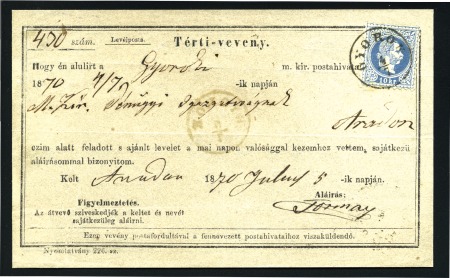 430 szám. Levélposta. Térti-vevény.
GYOROK
10 KR.
Hogy én alulirt a Gyoroki m. kir. postahivatal
1870 4/7 -ik napján
M. kir. Pénzügyi Igazgatóságnak
Aradon
czim alatt feladott s ajánlt levelet a mai napon valósággal kezemhez vettem, sajátkezü
aláirásommal bizonyitom.
Kelt Aradon 1870 Julius 5 -ik napján.
Figyelmeztetés. Aláirás:
Az átvevő sziveskedjék a keltet és nevét
sajátkezüleg aláirni.
Ezen vevény postafordultával a fennevezett postahivatalhoz viszaküldendő.
Nyomtatvány 276. sz.